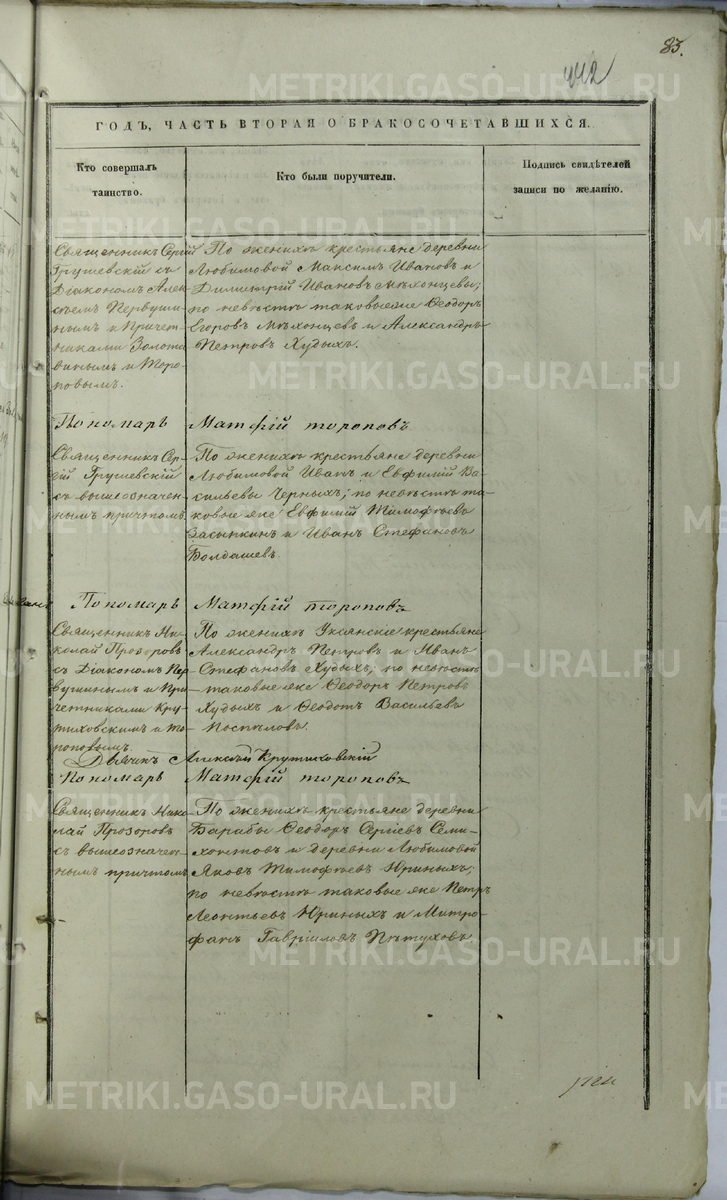 83.
442
ГОДЪ, ЧАСТЬ ВТОРАЯ О БРАКОСОЧЕТАВШИХСЯ.
Кто совершалъ
таинство.
Кто были поручители.
Подпись свидѣтелей
записи по желанію.
Священникъ Сергій
Грушевскій съ
Діакономъ Алек-
сѣемъ Первуши-
нымъ и Причет-
никами Золота-
винымъ и Торо-
повымъ.
По женихѣ крестьяне деревни
Любимовой Максимъ Ивановъ и
Димитрій Ивановъ Мѣхонцевы;
по невѣстѣ таковые же Ѳеодоръ
Егоровъ Мѣхонцевъ и Александръ
Петровъ Худыхъ.
Пономарь Матфій Тороповъ
Священникъ Сер-
гій Грушевскій
съ вышеозначен-
нымъ причтомъ.
По женихѣ крестьяне деревни
Любимовой Иванъ и Евфимій Ва-
сильевы Черныхъ; по невѣстѣ та-
ковые же Евфимій Тимофѣевъ
Засыпкинъ и Иванъ Стефановъ
Болдашевъ.
Пономарь Матфій Тороповъ
Священникъ Ни-
колай Прозоровъ
съ Діакономъ Пер-
вушинымъ и При-
четниками Кру-
тиховскимъ и То-
роповымъ.
По женихѣ Уксянскіе крестьяне
Александръ Петровъ и Иванъ
Стефановъ Худыхъ; по невѣстѣ
таковые же Ѳеодоръ Петровъ
Худыхъ и Ѳеодотъ Васильевъ
Поспѣловъ.
Дьячекъ Алексѣй Крутиховскій
Пономарь Матфій Тороповъ
Священникъ Нико-
лай Прозоровъ
съ вышеозначен-
нымъ причтомъ
По женихѣ крестьяне деревни
Барабы Ѳеодоръ Сергіевъ Семи-
хонтовъ и деревни Любимовой
Яковъ Тимофѣевъ Юриныхъ;
по невѣстѣ таковые же Петръ
Леонтьевъ Юриныхъ и Митро-
фанъ Гавріиловъ Пѣтуховъ
METRIKI.GASO-URAL.RU